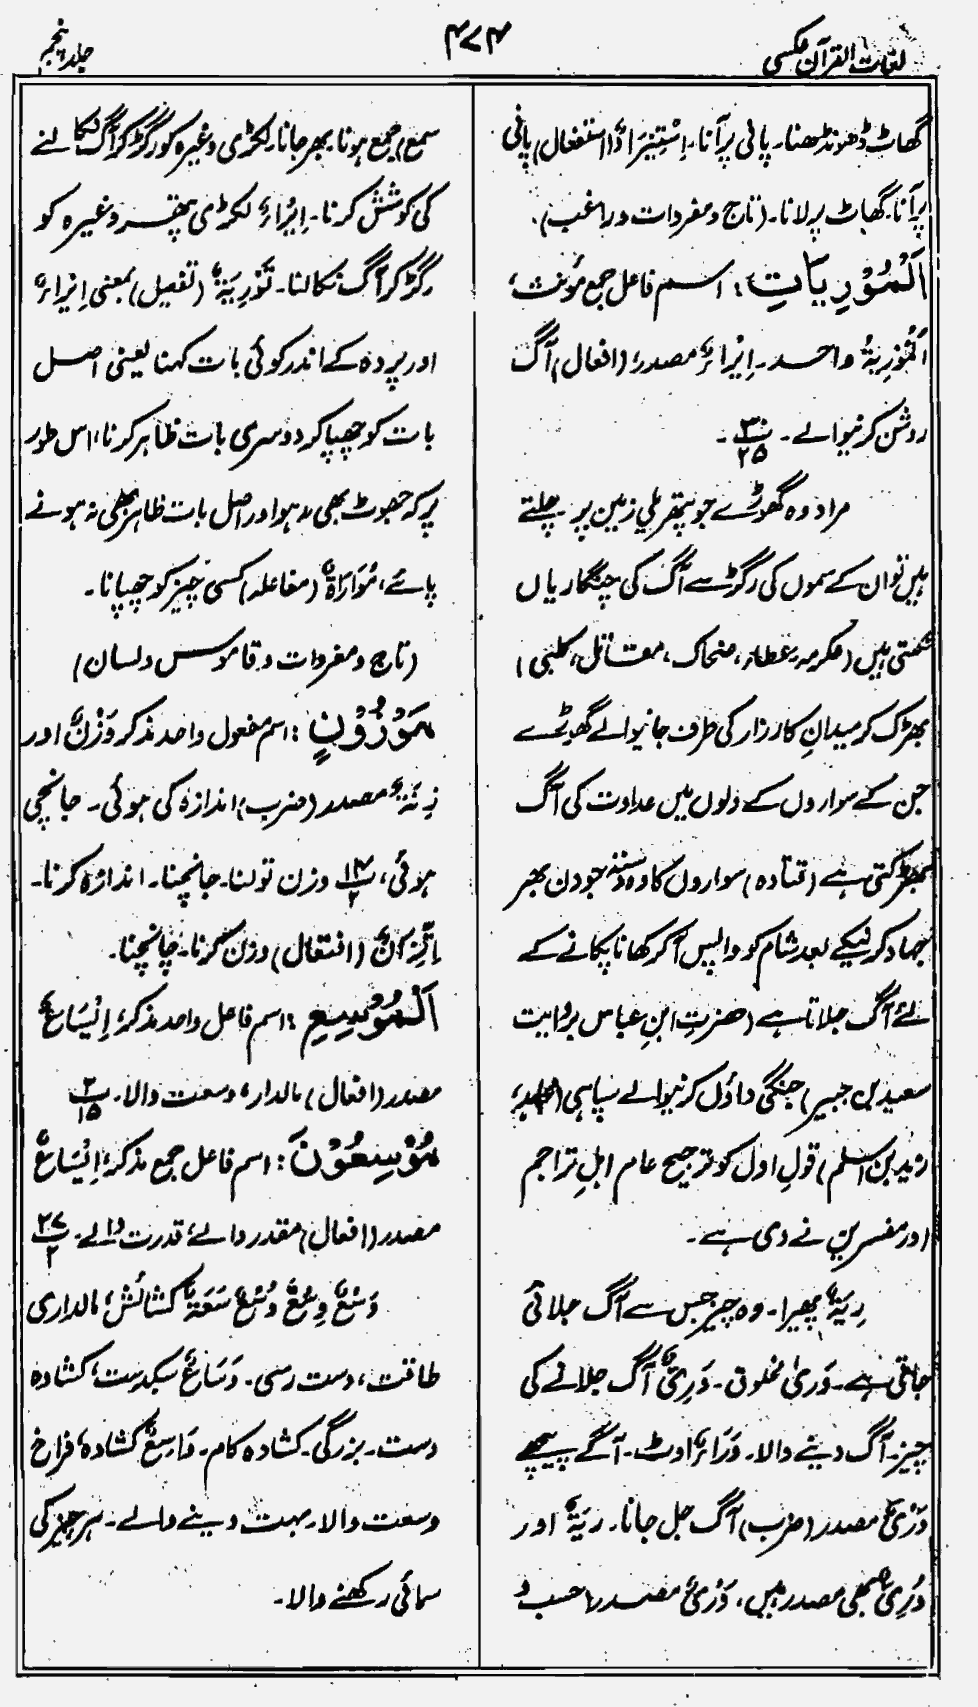 لغات القرآن عکسی
۴۷۴
جلد پنجم
گھاٹ ڈھونڈھنا۔ پانی پر آنا۔ اِسْتِیْرَادٌ (استفعال) پانی
پر آنا۔ گھاٹ پر لانا۔ (تاج و مفردات و راغب)۔
اَلْمُوْرِیَاتِ: اسم فاعل جمع مؤنث،
اَلْمُوْرِیَةُ واحد۔ اِیْرَاءٌ مصدر، (افعال) آگ
روشن کرنیوالے۔ ۳۰/۲۵۔
مراد وہ گھوڑے جو پتھریلی زمین پر چلتے
ہیں تو ان کے سموں کی رگڑ سے آگ کی چنگاریاں
نکلتی ہیں (عکرمہ، عطاء، ضحاک، مقاتل، کلبی)
بھڑک کر میدانِ کارزار کی طرف جانیوالے گھوڑے
جن کے سواروں کے دلوں میں عداوت کی آگ
بھڑکتی ہے (قتادہ) سواروں کا وہ دستہ جو دن بھر
جہاد کرنیکے بعد شام کو واپس آکر کھانا پکانے کے
لئے آگ جلاتا ہے (حضرت ابنِ عباس بروایت
سعید بن جبیر) جنگی داؤں کرنیوالے سپاہی (مجاہد،
زید بن اسلم) قولِ اول کو ترجیح عام اہلِ تراجم
اور مفسرین نے دی ہے۔
رِیَةٌ پھیپھڑا۔ وہ چیز جس سے آگ جلائی
جاتی ہے۔ وَریٰ مخلوق۔ وَرِیٌّ آگ جلانے کی
چیز۔ آگ دینے والا۔ وَرَاءٌ اوٹ۔ آگے پیچھے
وَرْیٌ مصدر (ضرب) آگ جل جانا۔ رِیَةٌ اور
وُرِیٌّ بھی مصدر ہیں، وَرْیٌ مصدر (حسب و
سمع) جمع ہونا۔ بھر جانا۔ لکڑی وغیرہ کو رگڑ کر آگ نکالنے
کی کوشش کرنا۔ اِیْرَاءٌ لکڑی پتھر وغیرہ کو
رگڑ کر آگ نکالنا۔ تَوْرِیَةٌ (تفعیل) بمعنی اِیْرَاءٌ
اور پردہ کے اندر کوئی بات کہنا یعنی اصل
بات کو چھپا کر دوسری بات ظاہر کرنا، اس طور
پر کہ جھوٹ بھی نہ ہو اور اصل بات ظاہر بھی نہ ہونے
پائے، مُوَارَاةٌ (مفاعلہ) کسی چیز کو چھپانا۔
(تاج و مفردات و قاموس و لسان)
مَوْزُوْنٍ: اسم مفعول واحد مذکر وَزْنٌ اور
زِنَةٌ مصدر (ضرب) اندازہ کی ہوئی۔ جانچی
ہوئی، ۱۴/۲ وزن تولنا۔ جانچنا۔ اندازہ کرنا۔
اِتِّزَانٌ (افتعال) وزن کرنا۔ جانچنا۔
اَلْمُوْسِعِ: اسم فاعل واحد مذکر، اِیْسَاعٌ
مصدر (افعال) مالدار، وسعت والا۔ ۲/۱۵
مُوْسِعُوْنَ: اسم فاعل جمع مذکر، اِیْسَاعٌ
مصدر (افعال) مقدر والے، قدرت والے۔ ۲۷/۲
وَسْعٌ وِسْعٌ وُسْعٌ سَعَةٌ کشائش، مالداری
طاقت، دست رسی۔ وَسَاعٌ سبکدست، کشادہ
دست۔ بزرگی۔ کشادہ کام۔ وَاسِعٌ کشادہ، فراخ
وسعت والا۔ بہت دینے والے۔ ہر چیز کی
سمائی رکھنے والا۔